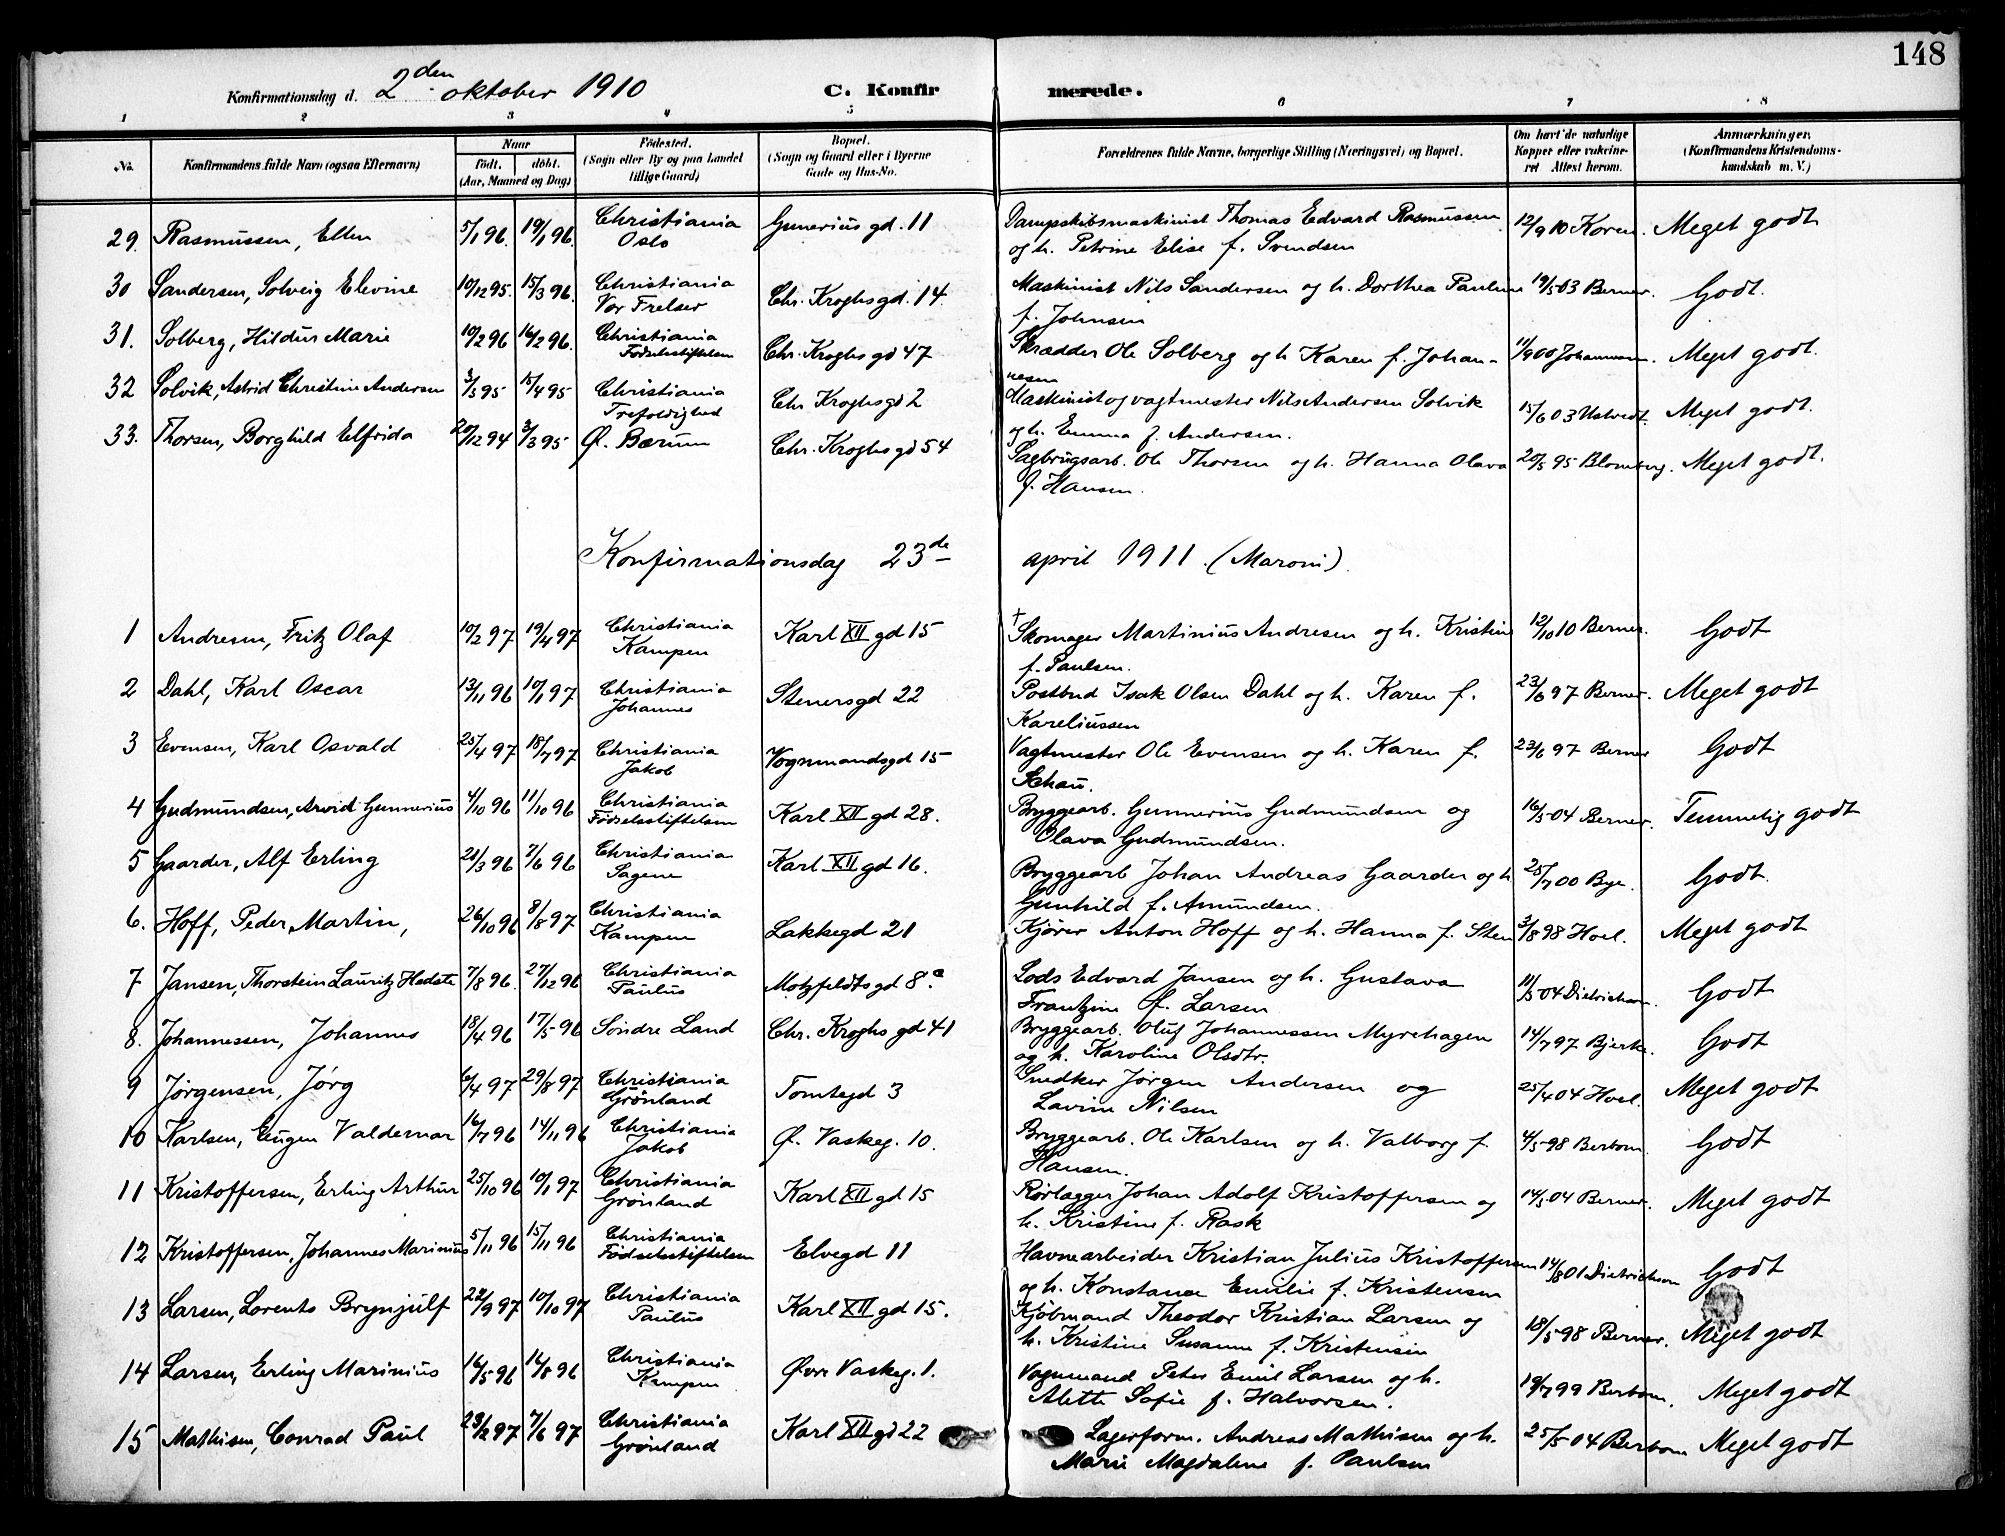 148
Konfirmationsdag d. 2den oktober 1910 C. Konfirmerede.
1 2 3 4 5 6 7 8
No. Konfirmandens fulde Navn (ogsaa Efternavn) Naar født. døbt. (Aar, Maaned og Dag) Fødested. (Sogn eller By og paa Landet tillige Gaard) Bopæl. (Sogn og Gaard eller i Byerne Gade og Hus-No. Forældrenes fulde Navne, borgerlige Stilling (Næringsvei) og Bopæl. Om havt de naturlige Kopper eller vaccineret Attest herom. Anmærkninger. (Konfirmandens Kristendomskundskab m. V.)
29. Rasmussen, Ellen 5/1 96. 19/1 96. Christiania Oslo Gunerius gd. 11 Dampskibsmaskinist Thomas Edvard Rasmussen 12/9 10 Koren. Meget godt
og h. Petrine Elise f. Svendsen
30 Sandersen, Solveig Elevine 10/12 95. 15/3 96. Christiania Vor Frelser Chr. Kroghs gd. 14. Maskinist Nils Sandersen og h. Dorthea Pauline 19/5 03 Berner. Godt.
f. Johnsen
31. Solberg, Hildur Marie 10/2 96 16/2 96. Christiania Fødselsstiftelsen Chr. Kroghs gd 47 Skrædder Ole Solberg og h Karen f. Johan- 11/9 00 Johannesen. Meget godt.
nesen
32 Solvik, Astrid Christine Andersen 3/3 95 15/4 95 Christiania Trefoldighed Chr Kroghs gd 2 Maskinist og vagtmester Nils Andersen Solvik 15/6 03 Ustvedt. Meget godt.
og h. Emma f. Andersen.
33. Thorsen, Borghild Elfrida 20/12 94 3/3 95 Ø. Bærum Chr. Kroghs gd 54 Sagbrugsarb. Ole Thorsen og h. Hanna Olava 20/5 95 Blomberg. Meget godt.
f. Hansen.
Konfirmationsdag 23de april 1911. (Maroni).
1 Andresen, Fritz Olaf 10/2 97 19/4 97 Christiania Kampen Karl XII gd 15 † Skomager Martinius Andresen og h. Kristine 12/10 10 Berner. Godt
f. Paulsen.
2 Dahl, Karl Oscar 13/11 96 10/1 97 Christiania Johannes Stenersgd 22 Postbud Isak Olsen Dahl og h. Karen f. 23/6 97 Berner. Meget godt
Kareliussen
3 Evensen, Karl Osvald 25/4 97 18/7 97 Christiania Jakob Vognmandsgd 15 Vagtmester Ole Evensen og h. Karen f. 23/6 97 Berner Godt
Schau.
4 Gudmundsen, Arvid Gunnerius 4/10 96 11/10 96 Christiania Fødselsstiftelsen Karl XII gd 28. Bryggearb. Gunnerius Gudmundsen og 16/5 04 Berner. Temmelig godt
Olava Gudmundsen.
5 Gaarder, Alf Erling 21/3 96 7/6 96 Christiania Sagene Karl XII gd 16. Bryggearb Johan Andreas Gaarder og h 25/7 00 Bye. Godt.
Gunhild f. Amundsen.
6. Hoff, Peder Martin, 26/10 96 8/8 97 Christiania Kampen Lakkegd 21 Kjører Anton Hoff og h. Hanna f. Sten 3/8 98 Hoel. Meget godt
7 Jansen, Thorstein Lauritz Hedste 7/8 96. 27/12 96 Christiania Paulus Motzfeldtsgd 8a Lods Edvard Jansen og h. Gustava 11/5 04 Dietrichson. Godt
Frantzine f. Larsen
8. Johannessen, Johannes 18/4 96 17/5 96 Søndre Land Chr. Kroghs gd 41 Bryggearb. Oluf Johannessen Myrehagen 14/7 97 Bjerke. Godt
og h. Karoline Olsdtr.
9 Jørgensen, Jørg 6/4 97 29/8 97 Christiania Grønland Tomtegd 3 Snedker Jørgen Andersen og 25/4 04 Hoel. Meget godt
Lavine Nilsen
10 Karlsen, Eugen Valdemar 16/7 96 14/11 96 Christiania Jakob Ø. Vaskeg. 10. Bryggearb. Ole Karlsen og h. Valborg f. 4/5 98 Berbom. Godt
Hansen.
11 Kristoffersen, Erling Arthur 25/10 96 10/1 97 Christiania Grønland Karl XII gd 15 Rørlægger Johan Adolf Kristoffersen og 14/5 04 Berner. Meget godt
h. Kristine f. Rask
12 Kristoffersen, Johannes Marinius 5/11 96 15/11 96 Christiania Fødselsstiftelsen Elvegd 11 Havnearbeider Kristian Julius Kristoffersen 14/8 01 Dietrichson Godt
og h. Konstance Emilie f. Kristensen
13 Larsen, Lorents Brynjulf 22/9 97 10/10 97 Christiania Paulus Karl XII gd 15. Kjøbmand Theodor Kristian Larsen og 18/5 98 Berner. Meget godt
h. Kristine Susanne f. Kristensen
14 Larsen, Erling Marinius 16/5 96 16/8 96 Christiania Kampen Øvre Vaskeg. 1. Vognmand Peter Emil Larsen og h. 19/7 99 Berbom. Meget godt
Alette Sofie f. Halvorsen.
15 Mathisen, Conrad Paul 23/2 97 7/6 97 Christiania Grønland Karl XII gd 22 Lagerform. Andreas Mathisen og h. 25/5 04 Berbom Meget godt
Marie Magdalene f. Paulsen